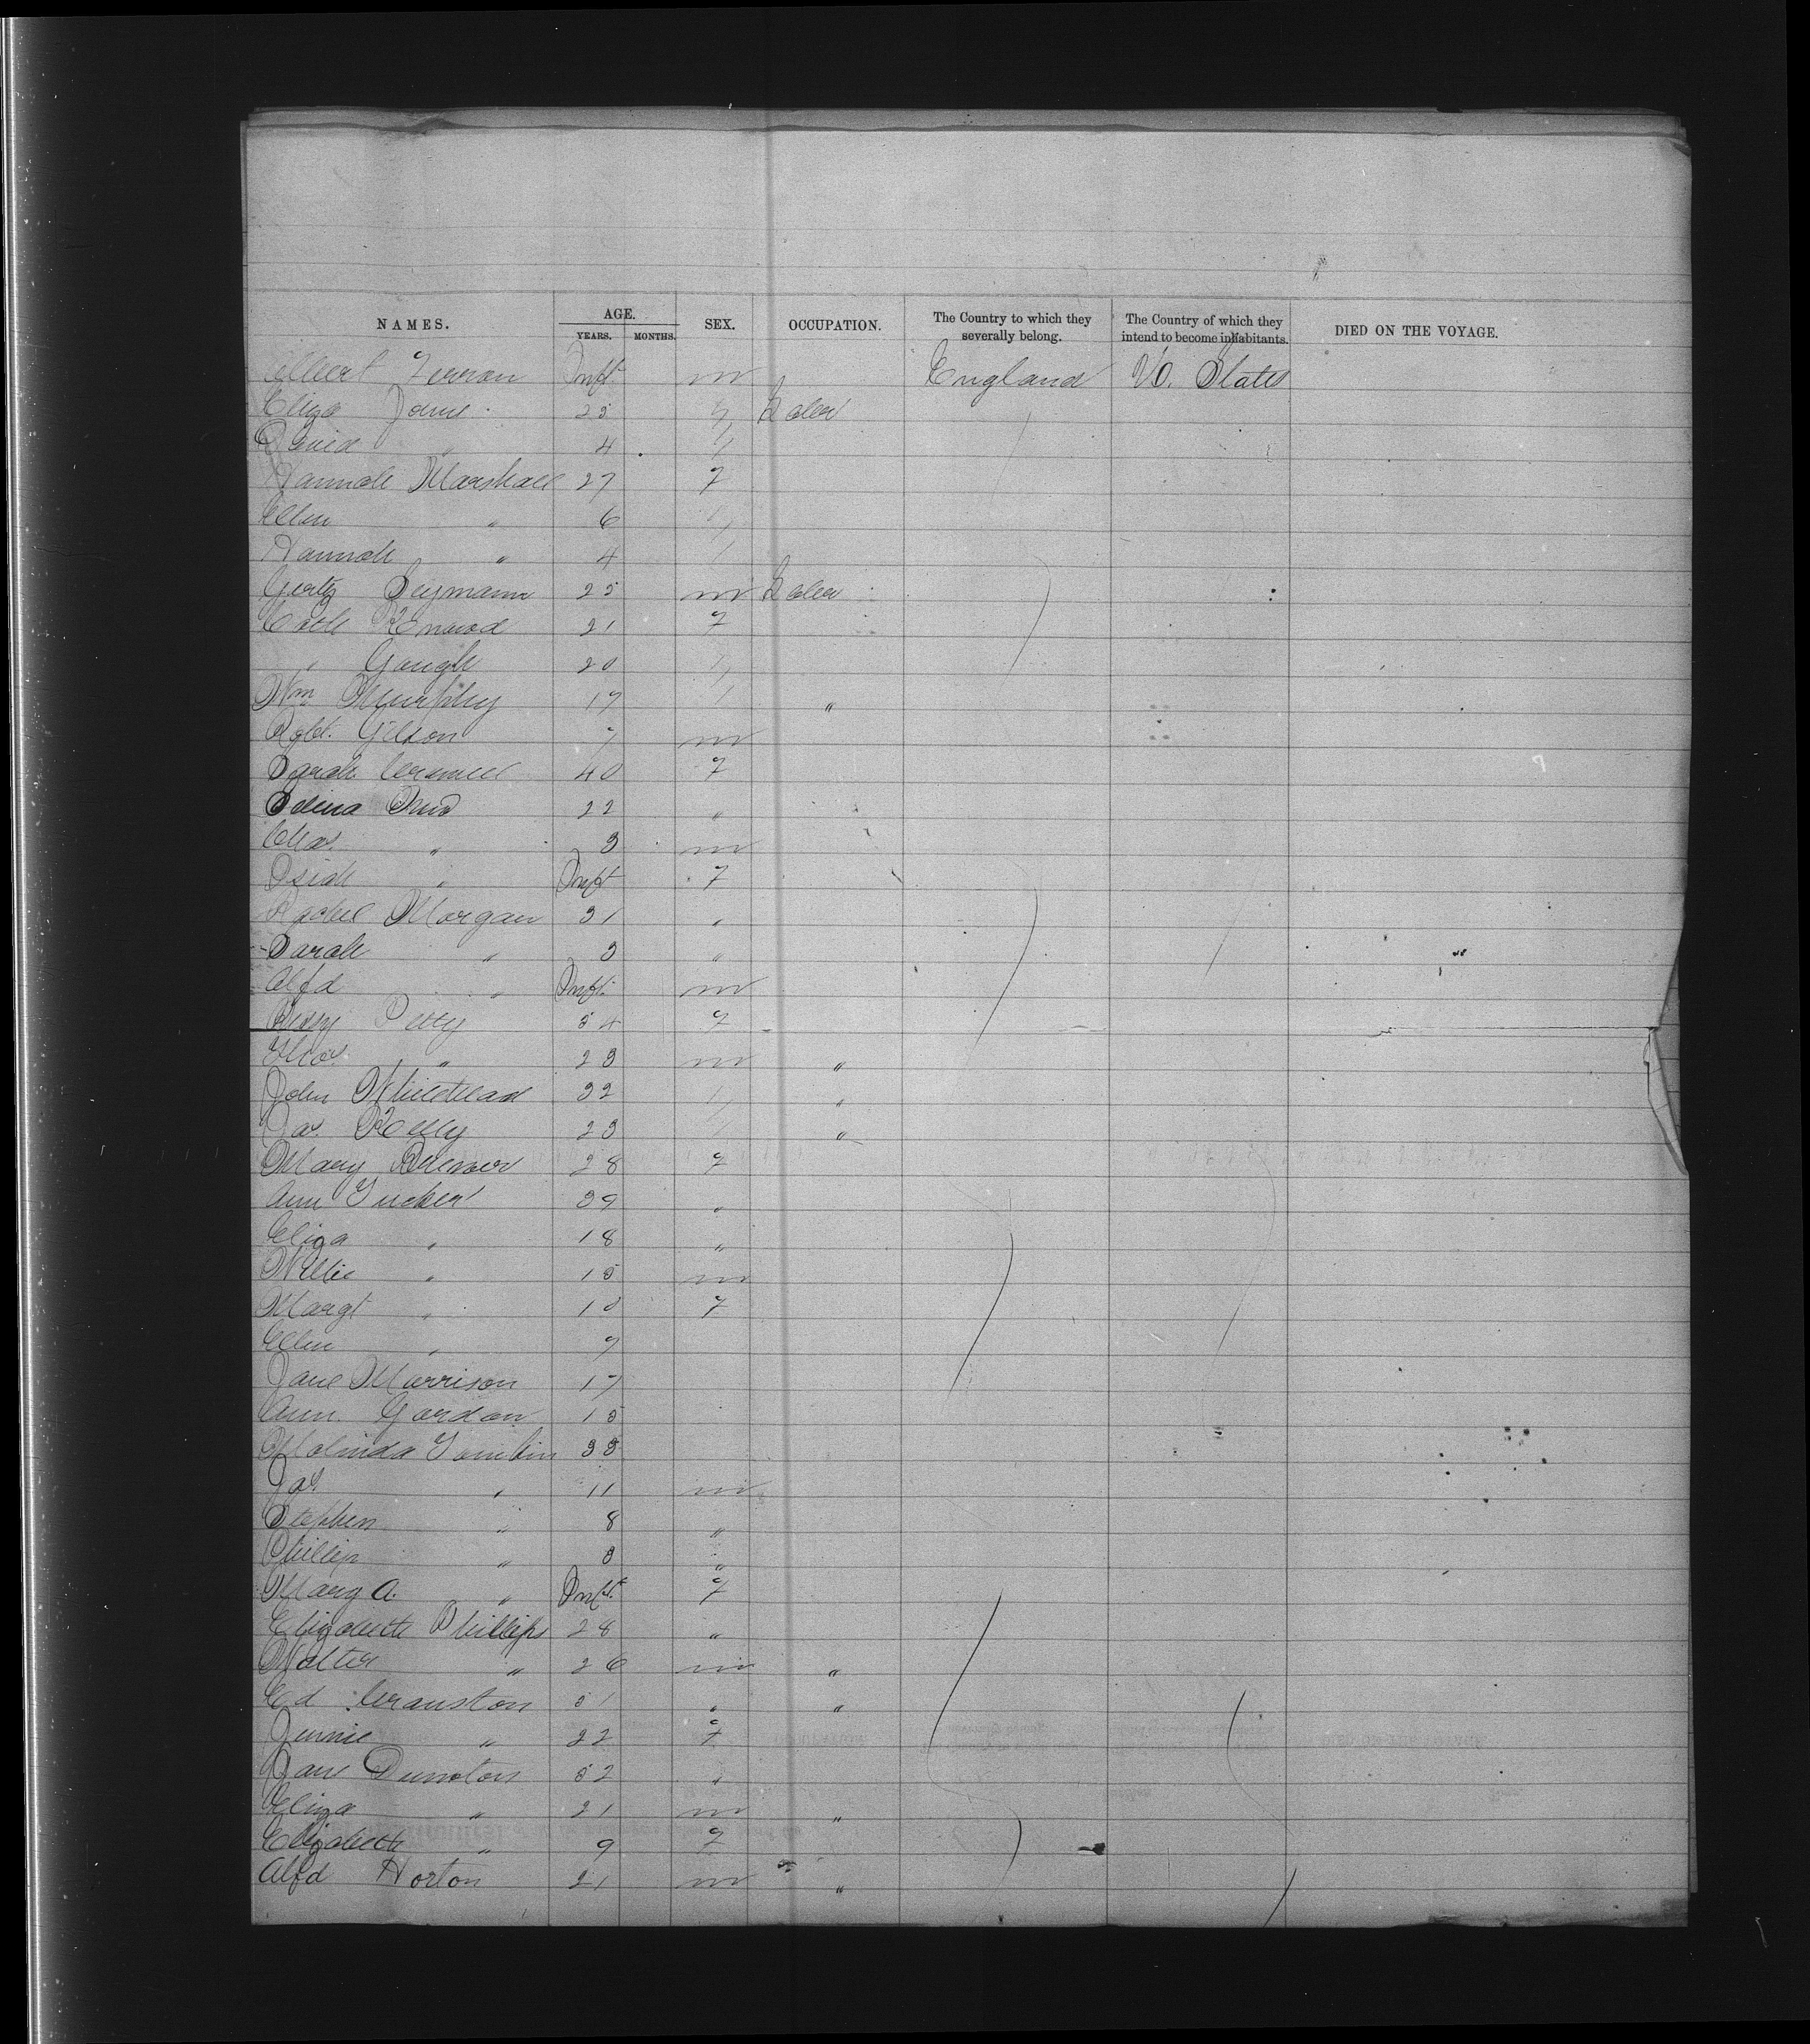 NAMES. AGE. SEX. OCCUPATION. The Country to which they severally belong. The Country of which they intend to become inhabitants. DIED ON THE VOYAGE.
YEARS. MONTHS.
Albert Ferron Inft m England U. States
Eliza Jame 25 " Labr
David " 4 "
Hannah Marshall 27 F
Ellen " 6 "
Hannah " 4 "
Seymann 25 m Labr
Cath 21 F
" Gough 20 "
Wm Murphy 17 " "
Robt. Gilson 7 m
Sarah 40 F
Selina 22 "
Chas. " 3 m
" Inft F
Rachel Morgan 31 "
Sarah " 3 "
Alfd " Inft. m
Betsy Petty 54 F
Thos " 23 m "
John Whitehead 32 " "
Jas. Kelly 23 " "
Mary Brewer 28 F
Ann Tucker 39 "
Eliza " 18 "
Willie " 15 m
Margt " 10 F
Ellen " 9
Jane Morrison 17
Ann. Gordon 15
Malinda Tomkin 33
Jas " 11 m
Stephen " 8 "
Phillip " 3 "
Mary A. " Inft. F
Elizabeth Phillips 28 "
Walter " 26 m "
Ed Cranston 51 " "
Jennie " 22 F
Jane Dunston 52 "
Eliza " 21 m "
Elizabeth " 9 F
Alfd Horton 21 m "